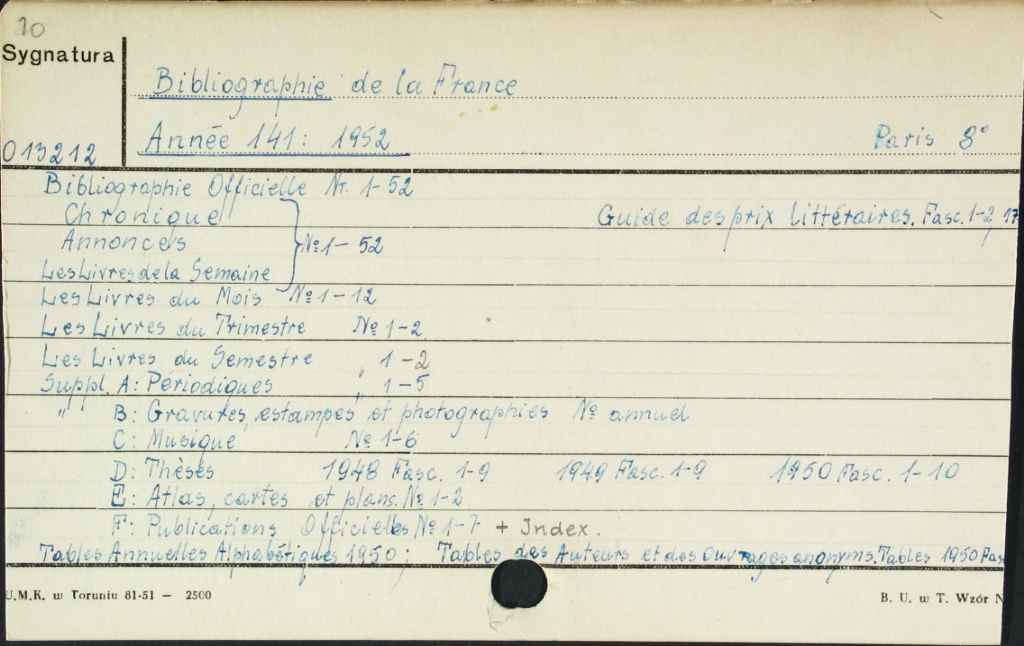 20
Sygnatura
Bibliographie de la France
Année 141: 1952 Paris 8°
013212
Bibliographie Officielle Nr. 1-52
Chronique Guide des prix littéraires. Fasc. 1-2, 17
Annonces № 1 - 52
Les Livres de la Semaine
Les Livres du Mois № 1 - 12
Les Livres du Trimestre № 1-2
Les Livres du Semestre 1 - 2
Suppl. A: Périodiques " 1 - 5
" B: Gravures, estampes et photographies № annuel
C: Musique № 1-6
D: Thèses 1948 Fasc. 1-9 1949 Fasc. 1-9 1950 Fasc. 1-10
E: Atlas, cartes et plans. № 1-2
F: Publications Officielles № 1-7 + Index.
Tables Annuelles Alphabétiques 1950; Tables des Auteurs et des Ouvrages anonyms. Tables 1950 Fas
U.M.K. w Toruniu 81-51 — 2500 B. U. w T. Wzór N